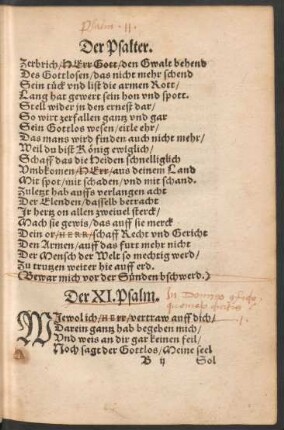 Psalm. 11.
Der Psalter.
Zerbrich/HErr Gott/den Gwalt behend
Des Gottlosen/das nicht mehr schend
Sein tück vnd list die armen Rott/
Lang hat gewert sein hon vnd spott.
Stell wider in den ernest dar/
So wirt zerfallen gantz vnd gar
Sein Gottlos wesen/eitle ehr/
Das mans wird finden auch nicht mehr/
Weil du bist König ewiglich/
Schaff das die Heiden schnelliglich
Vmbkomen/HErr/aus deinem Land
Mit spot/mit schaden/vnd mit schand.
Zuletzt hab auffs verlangen acht
Der Elenden/dasselb betracht
Jr hertz on allen zweiuel sterck/
Mach sie gewis/das auff sie merck
Dein or/HERR/schaff Recht vnd Gericht
Den Armen/auff das furt mehr nicht
Der Mensch der Welt so mechtig werd/
Zu trutzen weiter hie auff erd.
(Bewar mich vor der Sünden bschwerd.)
Der XI. Psalm.
In Domino
WJewol ich/HErr/vertraw auff dich/
Darein gantz hab begeben mich/
Vnd weis an dir gar keinen feil/
Noch sagt der Gottlos/Meine seel
B ij Sol